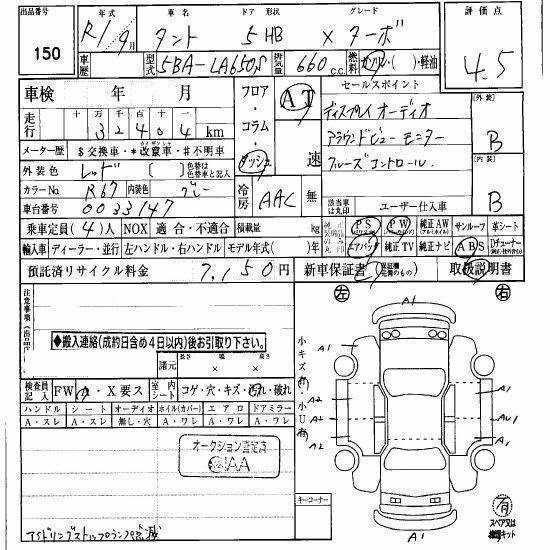 出品番号 150
年式 R1/9月
車名 タント
ドア 形状 5 HB
グレード X ターボ
評価点 4.5
車歴
型式 5BA-LA650S
排気量 660 c.c.
燃料 ガソリン・( )・軽油
車検 年 月
フロア・コラム・ダッシュ
AT 速
セールスポイント
ディスプレイオーディオ
アラウンドビューモニター
クルーズコントロール
外装 B
内装 B
走行 十 万 千 百 十 一
32404 km
メーター歴 $交換車・*改ざん車・#不明車
外装色 レッド [ ] 色替は色替車と記入
カラーNo. R67 内装色 グレー
冷房 AAC 無
車台番号 0033147
該当車は丸印 ユーザー仕入車
乗車定員 (4)人 NOX 適合・不適合 積載量 kg
PS PW 純正AW サンルーフ 革シート
輸入車 ディーラー・並行 左ハンドル・右ハンドル モデル年式( )年
エアバック 純正TV 純正ナビ ABS Dチューナー
預託済リサイクル料金 7,150円
新車保証書 取扱説明書
注意事項(出品店)
◆搬入連絡(成約日含め4日以内)後お引取り下さい。
諸元 長さ 幅 高さ
× ×
検査員記入 FW ・X要ス 室内シート コゲ・穴・キズ・汚れ・破れ
ハンドル シート オーディオ ホイル(カバー) エアロ ドアミラー
A・スレ A・スレ 無し・穴 A・ワレ A・ワレ A・ワレ
オークション査定済
JAA
アイドリングストップランプ点滅
左 右
小キズ有・小U有
A1
A1
A1
A2 A1
A2 AU1
A2 A1
A1
キーコーナー
有
スペア又は修理キット